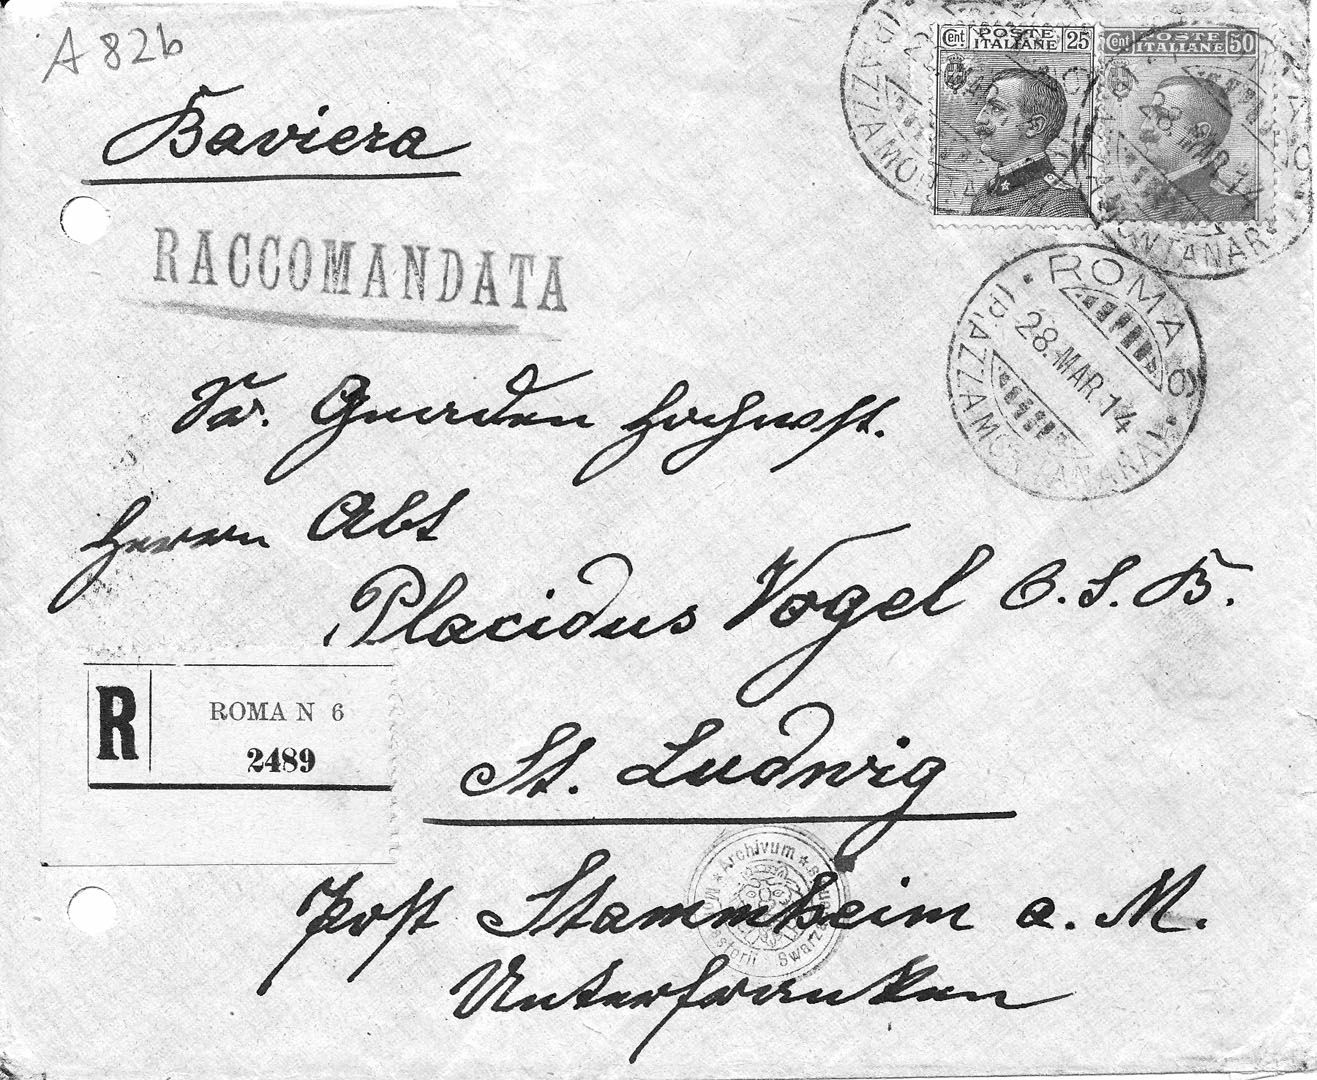 A 82b
Baviera
RACCOMANDATA
Cent. POSTE ITALIANE 25
Cent POSTE ITALIANE 50
ROMA 6
28.MAR.14
(PIAZZA MONTANARA)
Sr. Gnaden Hochwst.
Herrn Abt
Placidus Vogel O.S.B.
R
ROMA N 6
2489
St. Ludwig
Post Stammheim a. M.
Unterfranken
Archivum